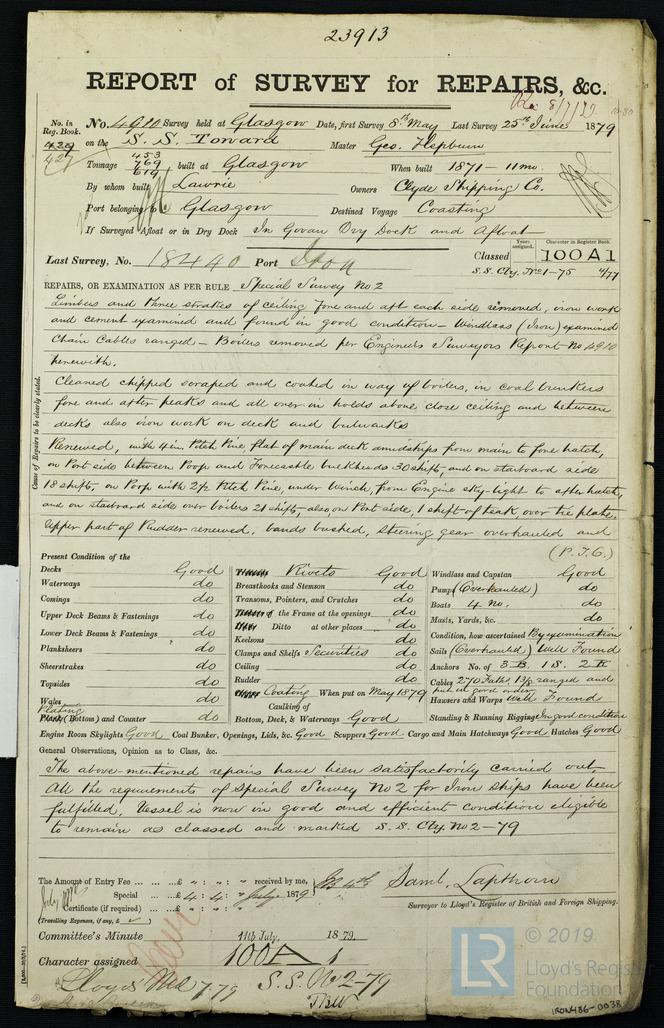 23913
REPORT of SURVEY for REPAIRS, &c.
8/7/79
No. in Reg. Book. No. 4910 Survey held at Glasgow Date, first Survey 8th May Last Survey 25th June 1879
429 on the S. S. Toward Master Geo. Hepburn
427
Tonnage 453 769 619 built at Glasgow When built 1871 - 11mo.
By whom built Lawrie Owners Clyde Shipping Co.
Port belonging to Glasgow Destined Voyage Coasting
If Surveyed Afloat or in Dry Dock In Govan Dry Dock and Afloat
Last Survey, No. 18440 Port Iron Classed Years assigned. Character in Register Book. 100A1
S.S. Cly. No1-75 4/77
REPAIRS, OR EXAMINATION AS PER RULE Special Survey No 2
Limbers and three strakes of ceiling fore and aft each side removed, iron work
and cement examined and found in good condition - Windlass (Iron) examined
Chain Cables ranged - Boilers removed per Engineers Surveyors Report No 4910
herewith.
Cleaned chipped scraped and coated in way of boilers, in coal bunkers
fore and after peaks and all over in holds above close ceiling and between
decks also iron work on deck and bulwarks
Renewed, with 4in. Pitch Pine flat of main deck amidships from main to fore hatch,
on Port side between Poop and Forecastle bulkheads 30 shifts, and on starboard side
18 shifts, on Poop with 2½ Pitch Pine, under Winch, from Engine sky-light to after hatch,
and on starboard side over boilers 21 shifts - also on Port side, 1 shift of teak over tie plate,
Upper part of Rudder renewed, bands bushed, steering gear overhauled and
(P.T.O.)
Cause of Repairs to be clearly stated.
Present Condition of the
Decks Good
Waterways do
Comings do
Upper Deck Beams & Fastenings do
Lower Deck Beams & Fastenings do
Planksheers do
Sheerstrakes do
Topsides do
Wales do
Plating
Plank (Bottom) and Counter do
Rivets Good
Breasthooks and Stemson do
Transoms, Pointers, and Crutches do
of the Frame at the openings do
Ditto at other places do
Keelsons do
Clamps and Shelfs Securities do
Ceiling do
Rudder do
Coating When put on May 1879
Caulking of
Bottom, Deck, & Waterways Good
Windlass and Capstan Good
Pumps (Overhauled) do
Boats 4 No. do
Masts, Yards, &c. do
Condition, how ascertained By examination
Sails (Overhauled) Well Found
Anchors No. of 3 B. 1 S. 2 K
Cables 270 Faths 1 3/8 ranged and
put in good order
Hawsers and Warps Well Found
Standing & Running Rigging In good condition
Engine Room Skylights Good Coal Bunker, Openings, Lids, &c. Good Scuppers Good Cargo and Main Hatchways Good Hatches Good
General Observations, Opinion as to Class, &c.
The above-mentioned repairs have been satisfactorily carried out.
All the requirements of Special Survey No 2 for Iron ships have been
fulfilled. Vessel is now in good and efficient condition eligible
to remain as classed and marked S.S. Cly. No 2-79
The Amount of Entry Fee ... £ " : " : " received by me,
Special ... £ 4 : 4 : " July 1879
Certificate (if required) ... £ " : " : "
(Travelling Expenses, if any, £ )
Saml. Lapthorn
Surveyor to Lloyd's Register of British and Foreign Shipping.
Committee's Minute 11th July. 1879.
Character assigned 100A1
Lloyds 7.79 S.S. No 2-79
© 2019
LR
Lloyd's Register
Foundation
IRON486-0038